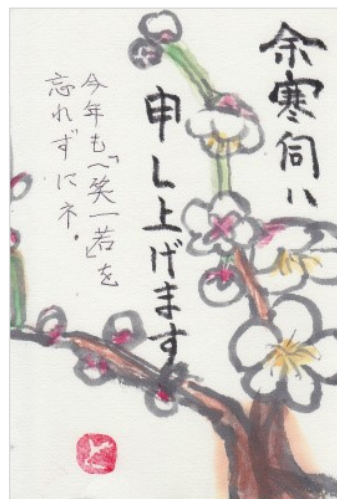 余寒伺い
申し上げます
今年も「笑一若」を
忘れずにネ。